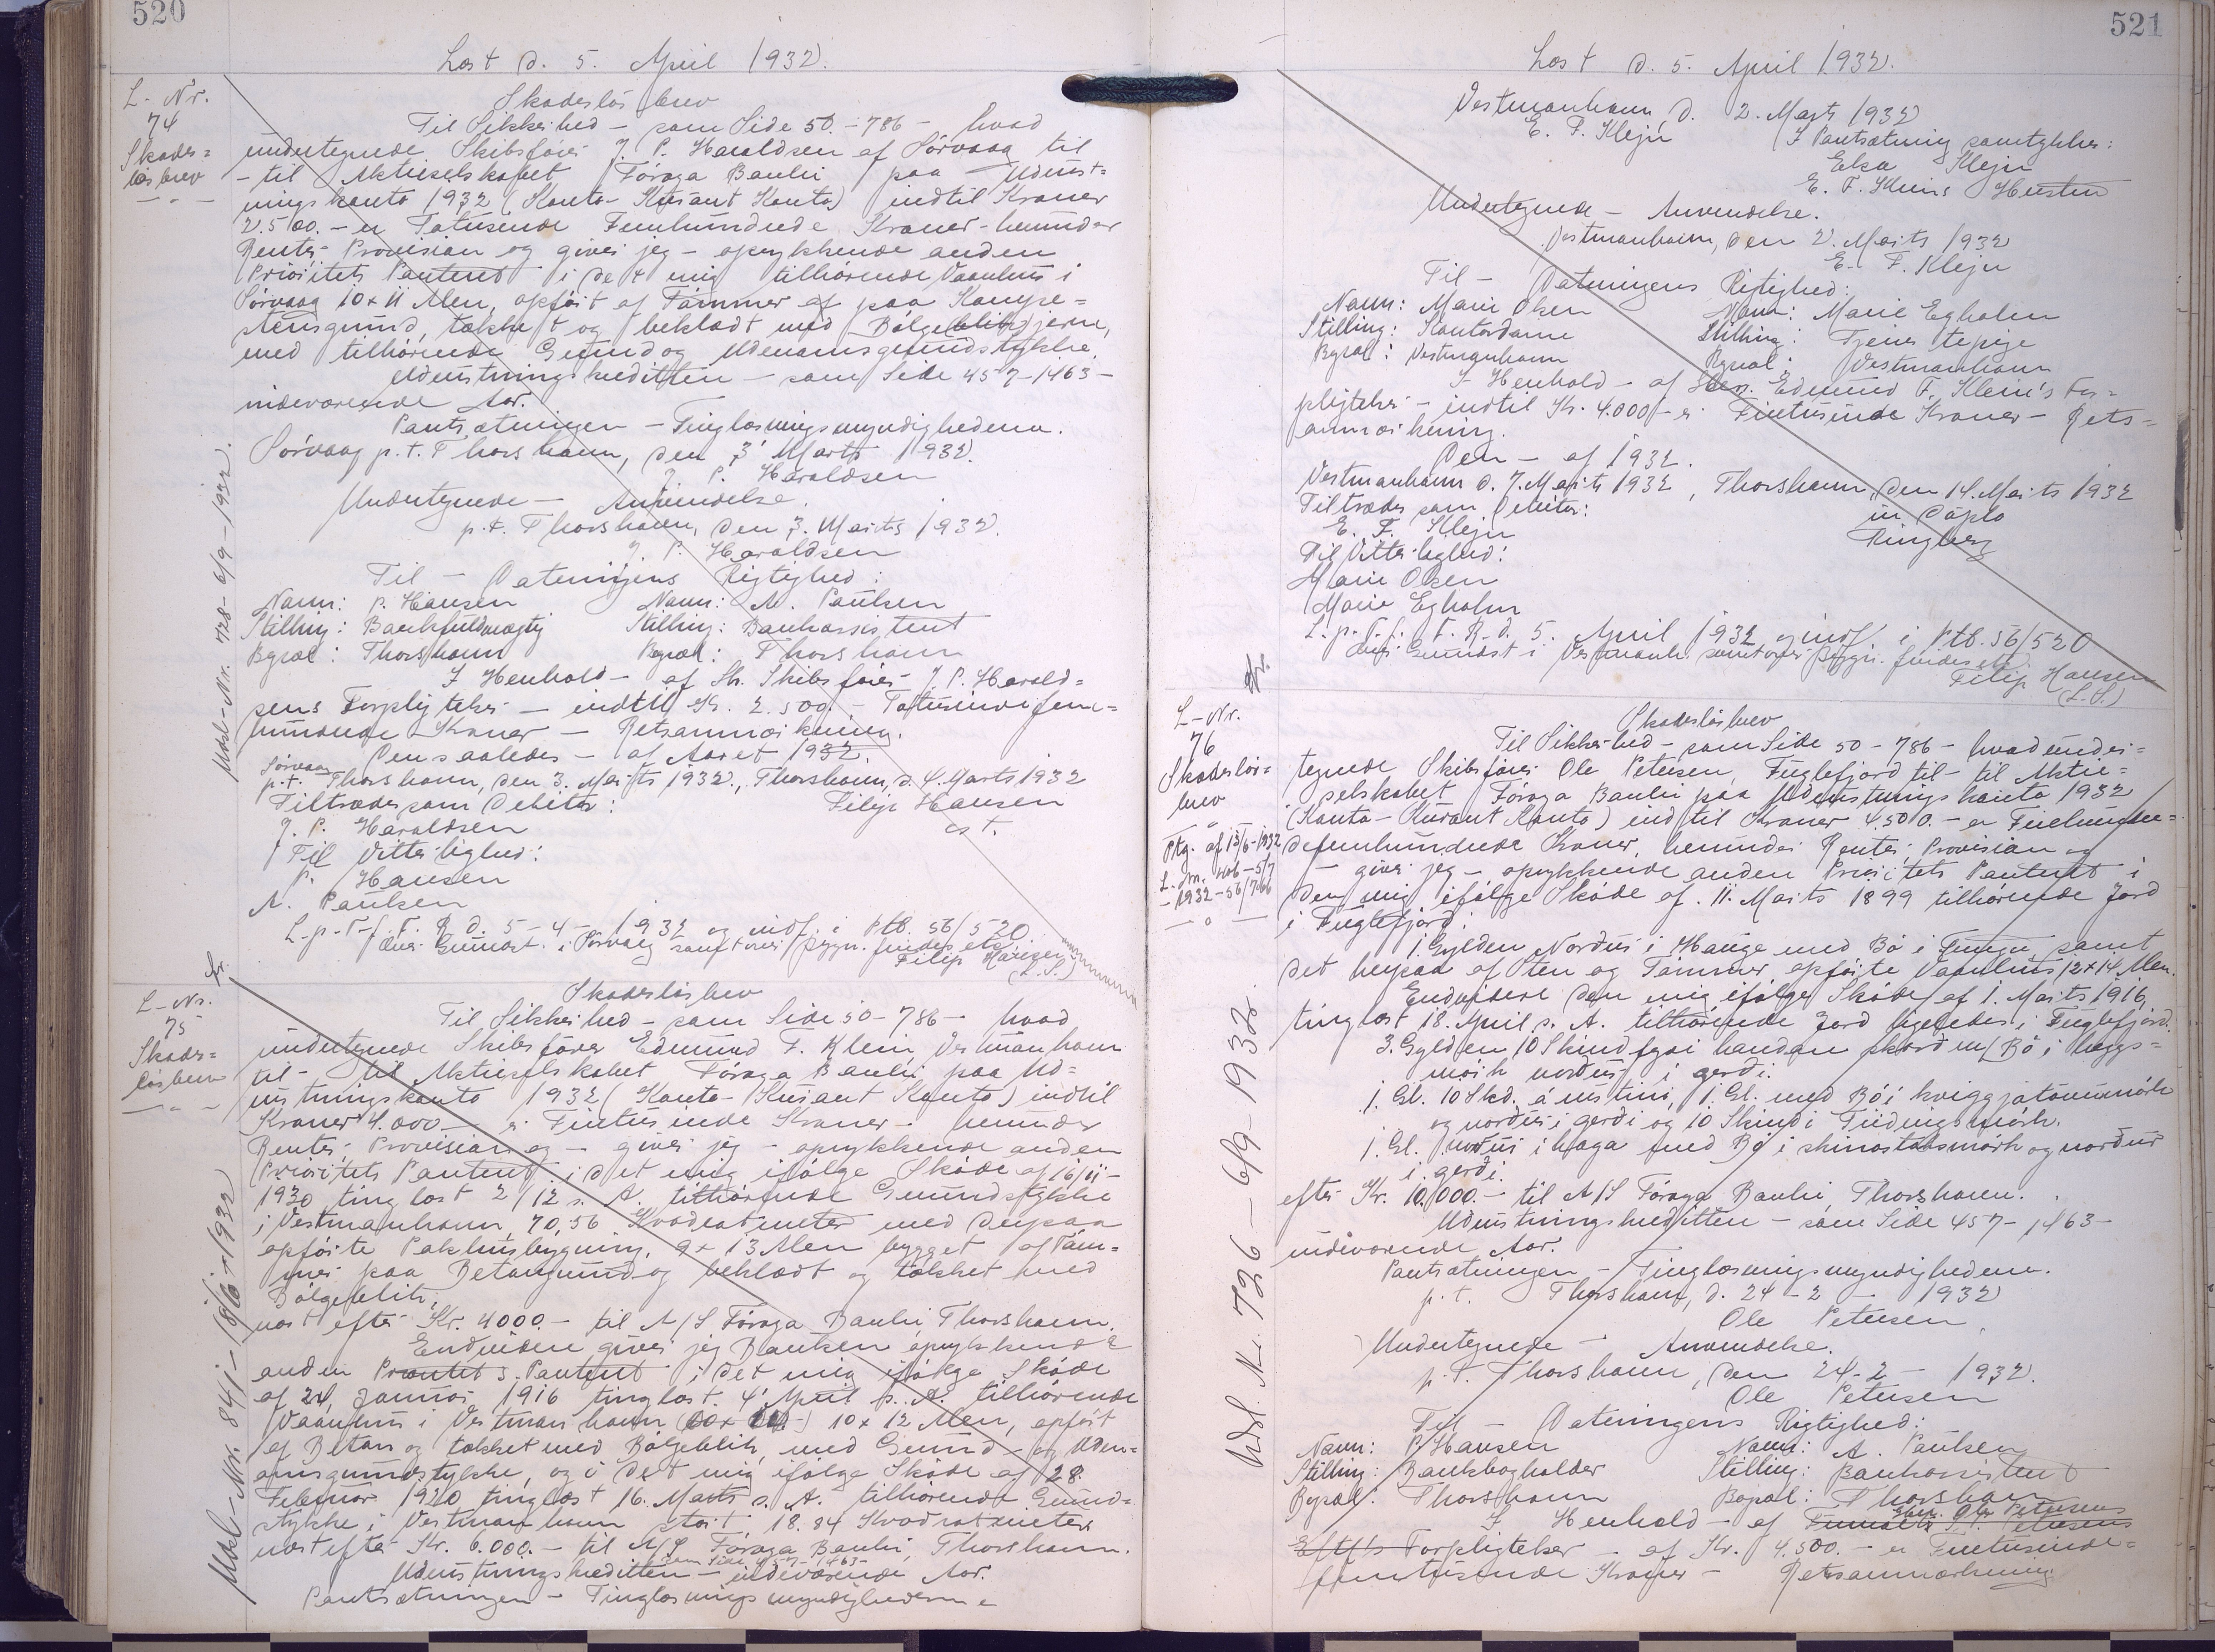 520
Læst d. 5. April 1932.
L-Nr.
74
Skades=
løsbrev
Skadesløsbrev
Til Sikkerhed - som Side 50 - 786 - hvad
undertegnede Skibsfører J. P. Haraldsen af Sörvaag til
- til Aktieselskabet Föroya Banki paa Udrust=
ningskonto 1932 (Konto-Kurant Konto) indtil Kroner
2.500.- er Totusende Femhundrede Kroner - herunder
Renter, Provision og giver jeg - oprykkende anden
Prioritets Panteret i det mig tilhørende Vaanhus i
Sörvaag 10 x 11 Alen, opført af Tömmer af paa Kampe=
stensgrund, tækket og beklædt med Bølgeblikjern,
med tilhørende Grund og Udenomsgrundstykke.
Udrustningskreditten - som Side 457-1463 -
indeværende Aar.
Pantsætningen - Tinglæsningsmyndighederne.
Sörvaag p.t. Thorshavn, den 3' Marts 1932.
J. P. Haraldsen
Undertegnede - Anvendelse.
p.t. Thorshavn, den 3. Marts 1932.
J. P. Haraldsen
Til - Dateringens Rigtighed:
Navn: P. Hansen Navn: A. Paulsen
Stilling: Bankfuldmægtig Stilling: Bankassistent
Bopæl: Thorshavn Bopæl: Thorshavn
I Henhold - af Hr. Skibsfører J. P. Harald=
sens Forpligtelser - indtil Kr. 2.500.- Totusinde fem=
hundrede Kroner - Retsanmærkning.
Den saaledes - af Aaret 1932.
Sörvaag
p.t. Thorshavn, den 3. Marts 1932., Thorshavn, d. 4. Marts 1932
Tiltrædes som Debitor: Filip Hansen
J. P. Haraldsen cst.
Til Vitterlighed:
P. Hansen
A. Paulsen
L.p.T.f.F.R.d. 5-4-1932 og indf. i Ptb. 56/520
Filip Hansen
(L.S.)
Udsl-Nr. 728 - 6/9 - 1932.
L-Nr.
75
Skades=
løsbrev
Skadesløsbrev
Til Sikkerhed - som Side 50 - 786 - hvad
undertegnede Skibsfører Edmund F. Klein, Vestmanhavn
til - til Aktieselskabet Föroya Banki paa Ud=
rustningskonto 1932 (Konto-Kurant Konto) indtil
Kroner 4.000.- er Firetusinde Kroner - herunder
Renter, Provision og - giver jeg - oprykkende anden
Prioritets Panteret i det mig ifølge Skøde af 16/11-
1930 tinglæst 2/12 s. A. tilhørende Grundstykke
i Vestmanhavn, 70,56 Kvadratmeter med derpaa
opførte Pakhusbygning, 9 x 13 Alen bygget af Töm=
mer paa Betongrund og beklædt og tækket med
Bølgeblik,
næst efter Kr. 4000.- til A/S Föroya Banki, Thorshavn.
Endvidere giver jeg Banken oprykkende
anden Prioritets Panteret i det mig ifølge Skøde
af 24. Januar 1916 tinglæst 4' April s. A. tilhørende
Vaanhus i Vestmanhavn 10 x 12 Alen, opført
af Beton og tækket med Bølgeblik, med Grund- og Uden=
omsgrundstykke, og i det mig ifølge Skøde af 28.
Februar 1920 tinglæst 16. Marts s. A. tilhørende Grund=
stykke i Vestmanhavn stort 18.84 Kvadratmeter
næst efter Kr. 6.000.- til A/S Föroya Banki, Thorshavn.
som Side 457-1463-
Udrustningskreditten - indeværende Aar.
Pantsætningen - Tinglæsningsmyndighederne
Udsl-Nr. 841 - 18/10 - 1932
521
Læst d. 5. April 1932.
Vestmanhavn, d. 2. Marts 1932
E. F. Klejn I Pantsætning samtykker:
Elsa Klejn
E. F. Kleins Hustru
Undertegnede - Anvendelse.
Vestmanhavn, den 2. Marts 1932
E. F. Klejn
Til - Dateringens Rigtighed:
Navn: Marie Olsen Navn: Marie Egholm
Stilling: Kontordame Stilling: Tjenestepige
Bopæl: Vestmanhavn Bopæl: Vestmanhavn
I Henhold - af Herr Edmund F. Klein's For=
pligtelser - indtil Kr. 4.000 - er Firetusinde Kroner - Rets=
anmærkning.
Den - af 1932.
Vestmanhavn d. 7. Marts 1932, Thorshavn, den 14. Marts 1932
Tiltrædes som Debitor: in duplo
E. F. Klejn Ringberg
Til Vitterlighed:
Marie Olsen
Marie Egholm
L.p.T.f.F.R.d. 5. April 1932 og indf. i Ptb. 56/520
Filip Hansen
(L.S.)
L-Nr.
76
Skadesløs=
brev
Ptg. af 13/6-1932
Skadesløsbrev
Til Sikkerhed - som Side 50 - 786 - hvad under=
tegnede Skibsfører Ole Petersen, Fuglefjord til - til Aktie=
selskabet Föroya Banki paa Udrustningskonto 1932
(Konto-Kurant Konto) indtil Kroner 4.500.- er
Kroner, herunder Renter, Provision og
- giver jeg - oprykkende anden Prioritets Panteret i
den mig ifølge Skøde af 11. Marts 1899 tilhørende Jord
i Fuglefjord:
1 Gylden Nordur i Hauge med Bö i samt
det herpaa af Sten og Tömmer opførte Vaanhus 12 x 14 Alen.
Endvidere den mig ifølge Skøde af 1. Marts 1916,
tinglæst 18. April s. A. tilhørende Jord ligeledes i Fuglefjord.
3. Gylden 10 Skind fyri handan skorðin, Bö i
mörk norður í gerði.
1. Gl. 10 Skd. á 1 Gl. med Bö i
og norður í gerði og 10 Skind i
1. Gl. norður i haga med Bö i og norður
í gerði.
efter Kr. 10.000.- til A/S Föroya Banki, Thorshavn.
Udrustningskreditten - som Side 457-1463-
indeværende Aar.
Pantsætningen - Tinglæsningsmyndighederne.
p.t. Thorshavn, d. 24-2-1932
Ole Petersen
Undertegnede - Anvendelse.
p.t. Thorshavn, den 24-2-1932.
Ole Petersen
Til - Dateringens Rigtighed:
Navn: P. Hansen Navn: A. Paulsen
Stilling: Bankbogholder Stilling: Bankassistent
Bopæl: Thorshavn Bopæl: Thorshavn
I Henhold - af Ole Petersens
Forpligtelser - af Kr. 4.500.- er Firetusinde=
Kroner - Retsanmærkning.
Udsl. Nr. 726 - 6/9 - 1932.